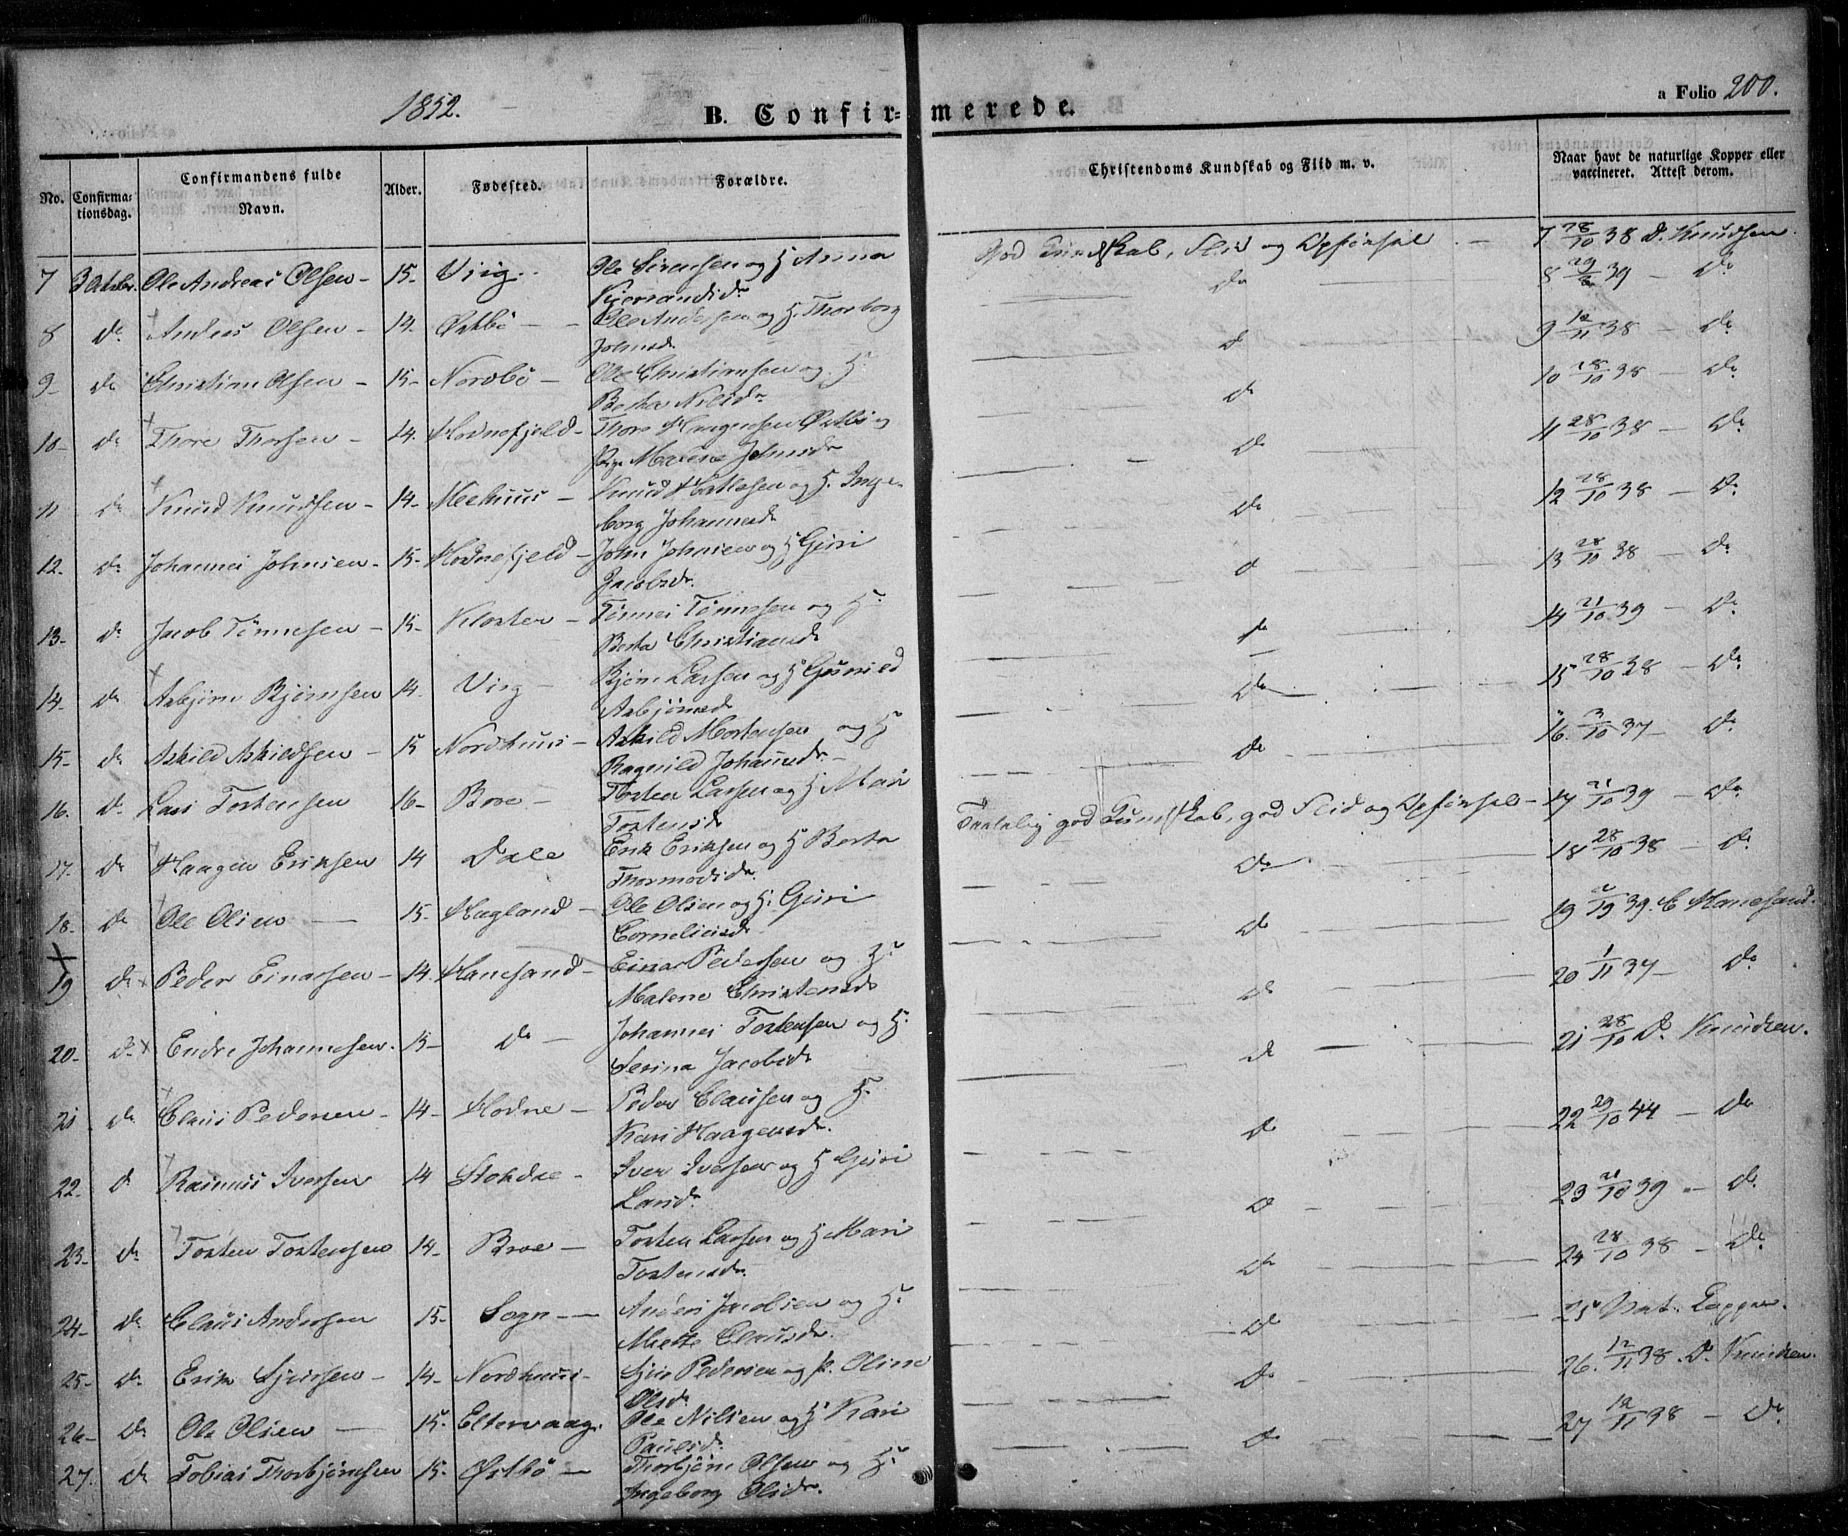 1852.
B. Confir=
merede.
a Folio 200.
No.
Confirma-
tionsdag.
Confirmandens fulde
Navn.
Alder.
Fødested.
Forældre.
Christendoms Kundskab og Flid m. v.
Naar havt de naturlige Kopper eller
vaccineret. Attest derom.
7 3 Octbr. Ole Andreas Olsen - 15- Viig - Ole Sörensen og H Anna
god Kundskab, Flid og Opförsel - 7 28/10 38 D. Knudsen.
8 do Andres Olsen - 14. Östbö - Ole Andersen og H. Thorborg
Johnsdr
do 8 29/8 39 - Do
9- do Christian Olsen - 15- Nordbö - Ole Christiansen og H
Bertha Nilsdr
d 9 12/11 38 - Do
10- do Thore Thorsen - 14. Hodnefjeld - Thore Östbö og
Malene Johnsdr
do 10 28/10 38 - Do
11 do Knud Knudsen - 14- Meehuus - Knud og H. Inge-
borg Johannesd
Do 11 28/10 38 - Do
12- do Johannes Johnsen - 15- Hodnefjeld - John Johnsen og H Guri
Jacobsdr.
Do 12 28/10 38 - Do
13- do Jacob Tönnesen - 15- Kloster - Tönnes Tönnesen og H.
Berta Christiansd
d 13 28/10 38 - Do
14- do Asbjörn Björnsen 14. Viig - Björn Larsen og H Gunild
Asbjörnsd
do 14 21/10 39 - Do
15- do Askild Askildsen - 15 Nordhuus - Askild Mortensen og H
Ragnild Johannesdr -
Do 15 28/10 38 - Do
16. do Lars Tostensen 16- Broe - Tosten Larsen og H Mari
Tostensd
do 16. 3/10 37 - Do
17. do Haagen Eriksen 14 Dale Erik Eriksen og H Berta
Thormodsdr.
Taalelig god Kundskab, god Flid og Opförsel - 17 21/10 39 - Do
18. do Ole Olsen - 15. Hagland - Ole Olsen og H. Guri
Corneliusd.
Do 18 28/10 38 - Do
19 do Peder Einarsen - 14. Hanesand - Einar Pedersen og H.
Malene Christensd
Do 19 39. C Hanesand.
20- do Endre Johannesen. 15- do - Johannes Tostensen og H.
Serina Jacobsd
do 20 1/11 37 - Do
21 do Claus Pedersen - 14- Hodne - Peder Clausen og H.
Kari Haagensdr.
do 21 28/10 D. Knudsen.
22- d Rasmus Iversen 14 Stokdal - Iver Iversen og H Guri
Larsdr
do 22 29/10 44 - Do
23- do Tosten Tostensen 14- Broe - Tosten Larsen og H Mari
Tostensdr
d 23 21/10 39 - do
24- do Claus Andersen 15- Sogn - Anders Jacobsen og H.
Mette Clausdr.
do 24 28/10 38 - Do
25- do Erik Sjursen - 14- Nordhuus - Sjur Pedersen og H. Oline
Olsdr
do 25 Nat. Kopper.
26- do Ole Olsen - 15. Eltervaag. Ole Nilsen og H Kari
Paulsdr.
do 26. 12/11 38. D. Knudsen.
27. do Tobias Thorbjörnsen 15. Östbö - Thorbjörn Olsen og H.
Ingeborg Olsdr.
do 27 12/11 38 - Do